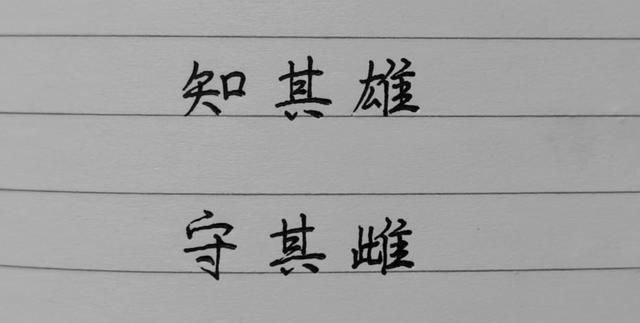 知其雄
守其雌